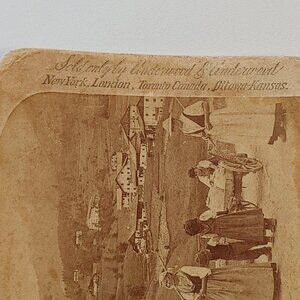 Sold only by Underwood & Underwood
New York, London, Toronto-Canada, Ottawa-Kansas.